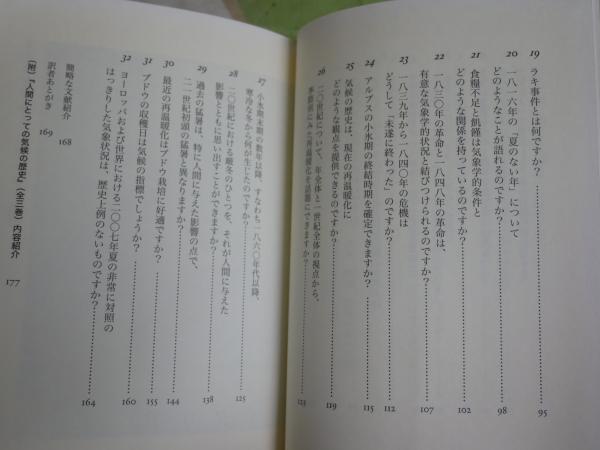 19 ラキ事件とは何ですか？……95
20 一八一六年の「夏のない年」について
どのようなことが語れるのですか？……98
21 食糧不足と飢饉は気象学的条件と
どのような関係を持っているのですか？……102
22 一八三〇年の革命と一八四八年の革命は、
有意な気象学的状況と結びつけられるのですか？……107
23 一八三九年から一八四〇年の危機は
どうして「未遂に終わった」のですか？……112
24 アルプスの小氷期の終結時期を確定できますか？……115
25 気候の歴史は、現在の再温暖化に
どのような観点を提供できるのですか？……119
26 二〇世紀について、年全体と一世紀全体の視点から、
事件状にみて再温暖化を話題にできますか？……123
27 小氷期末期の数年以降、すなわち一八六〇年代以降、
寒冷な冬から何が生じたのですか？……125
28 二〇世紀における厳冬のひとつを、それが人間に与えた
影響とともに思い出すことができますか？……138
29 過去の猛暑は、特に人間に与えた影響の点で、
二一世紀初頭の猛暑と異なりますか？……144
30 最近の再温暖化はブドウ栽培に好適ですか？……155
31 ブドウの収穫日は気候の指標でしょうか？……160
32 ヨーロッパおよび世界における二〇〇七年夏の非常に対照の
はっきりした気象状況は、歴史上例のないものですか？……164
簡略な文献紹介 168
訳者あとがき 169
〔附〕『人間にとっての気候の歴史』（全三巻）内容紹介 177